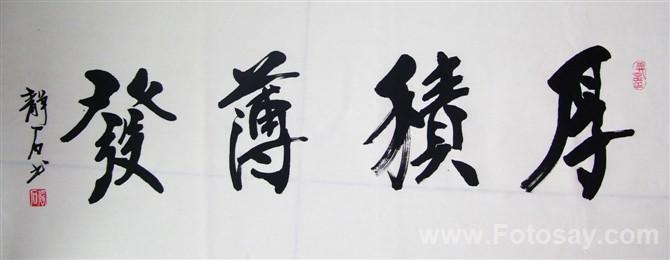 厚積薄發
靜石書
www.Fotosay.com